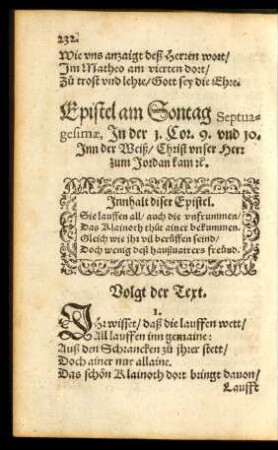 232.
Wie vns anzaigt deß Herren wort/
Im Matheo am vierten dort/
Zů trost vnd lehre/ Gott sey die Ehre.
Epistel am Sontag Septua-
gesimæ, In der 1. Cor. 9. vnd 10.
Inn der Weiß/ Christ vnser Herr
zum Jordan kam ꝛc.
Innhalt diser Epistel.
Sie lauffen all/ auch die vnfrummen/
Das Klainoth thůt ainer bekummen.
Gleich wie ihr vil berůffen seind/
Doch wenig deß haußuatters freünd.
Volgt der Text.
1.
IHr wisset/ daß die lauffen wett/
All lauffen inn gemaine:
Auß den Schrancken zů ihrer stett/
Doch ainer nur allaine.
Das schön Klainoth dort bringt dauon/
Laufft